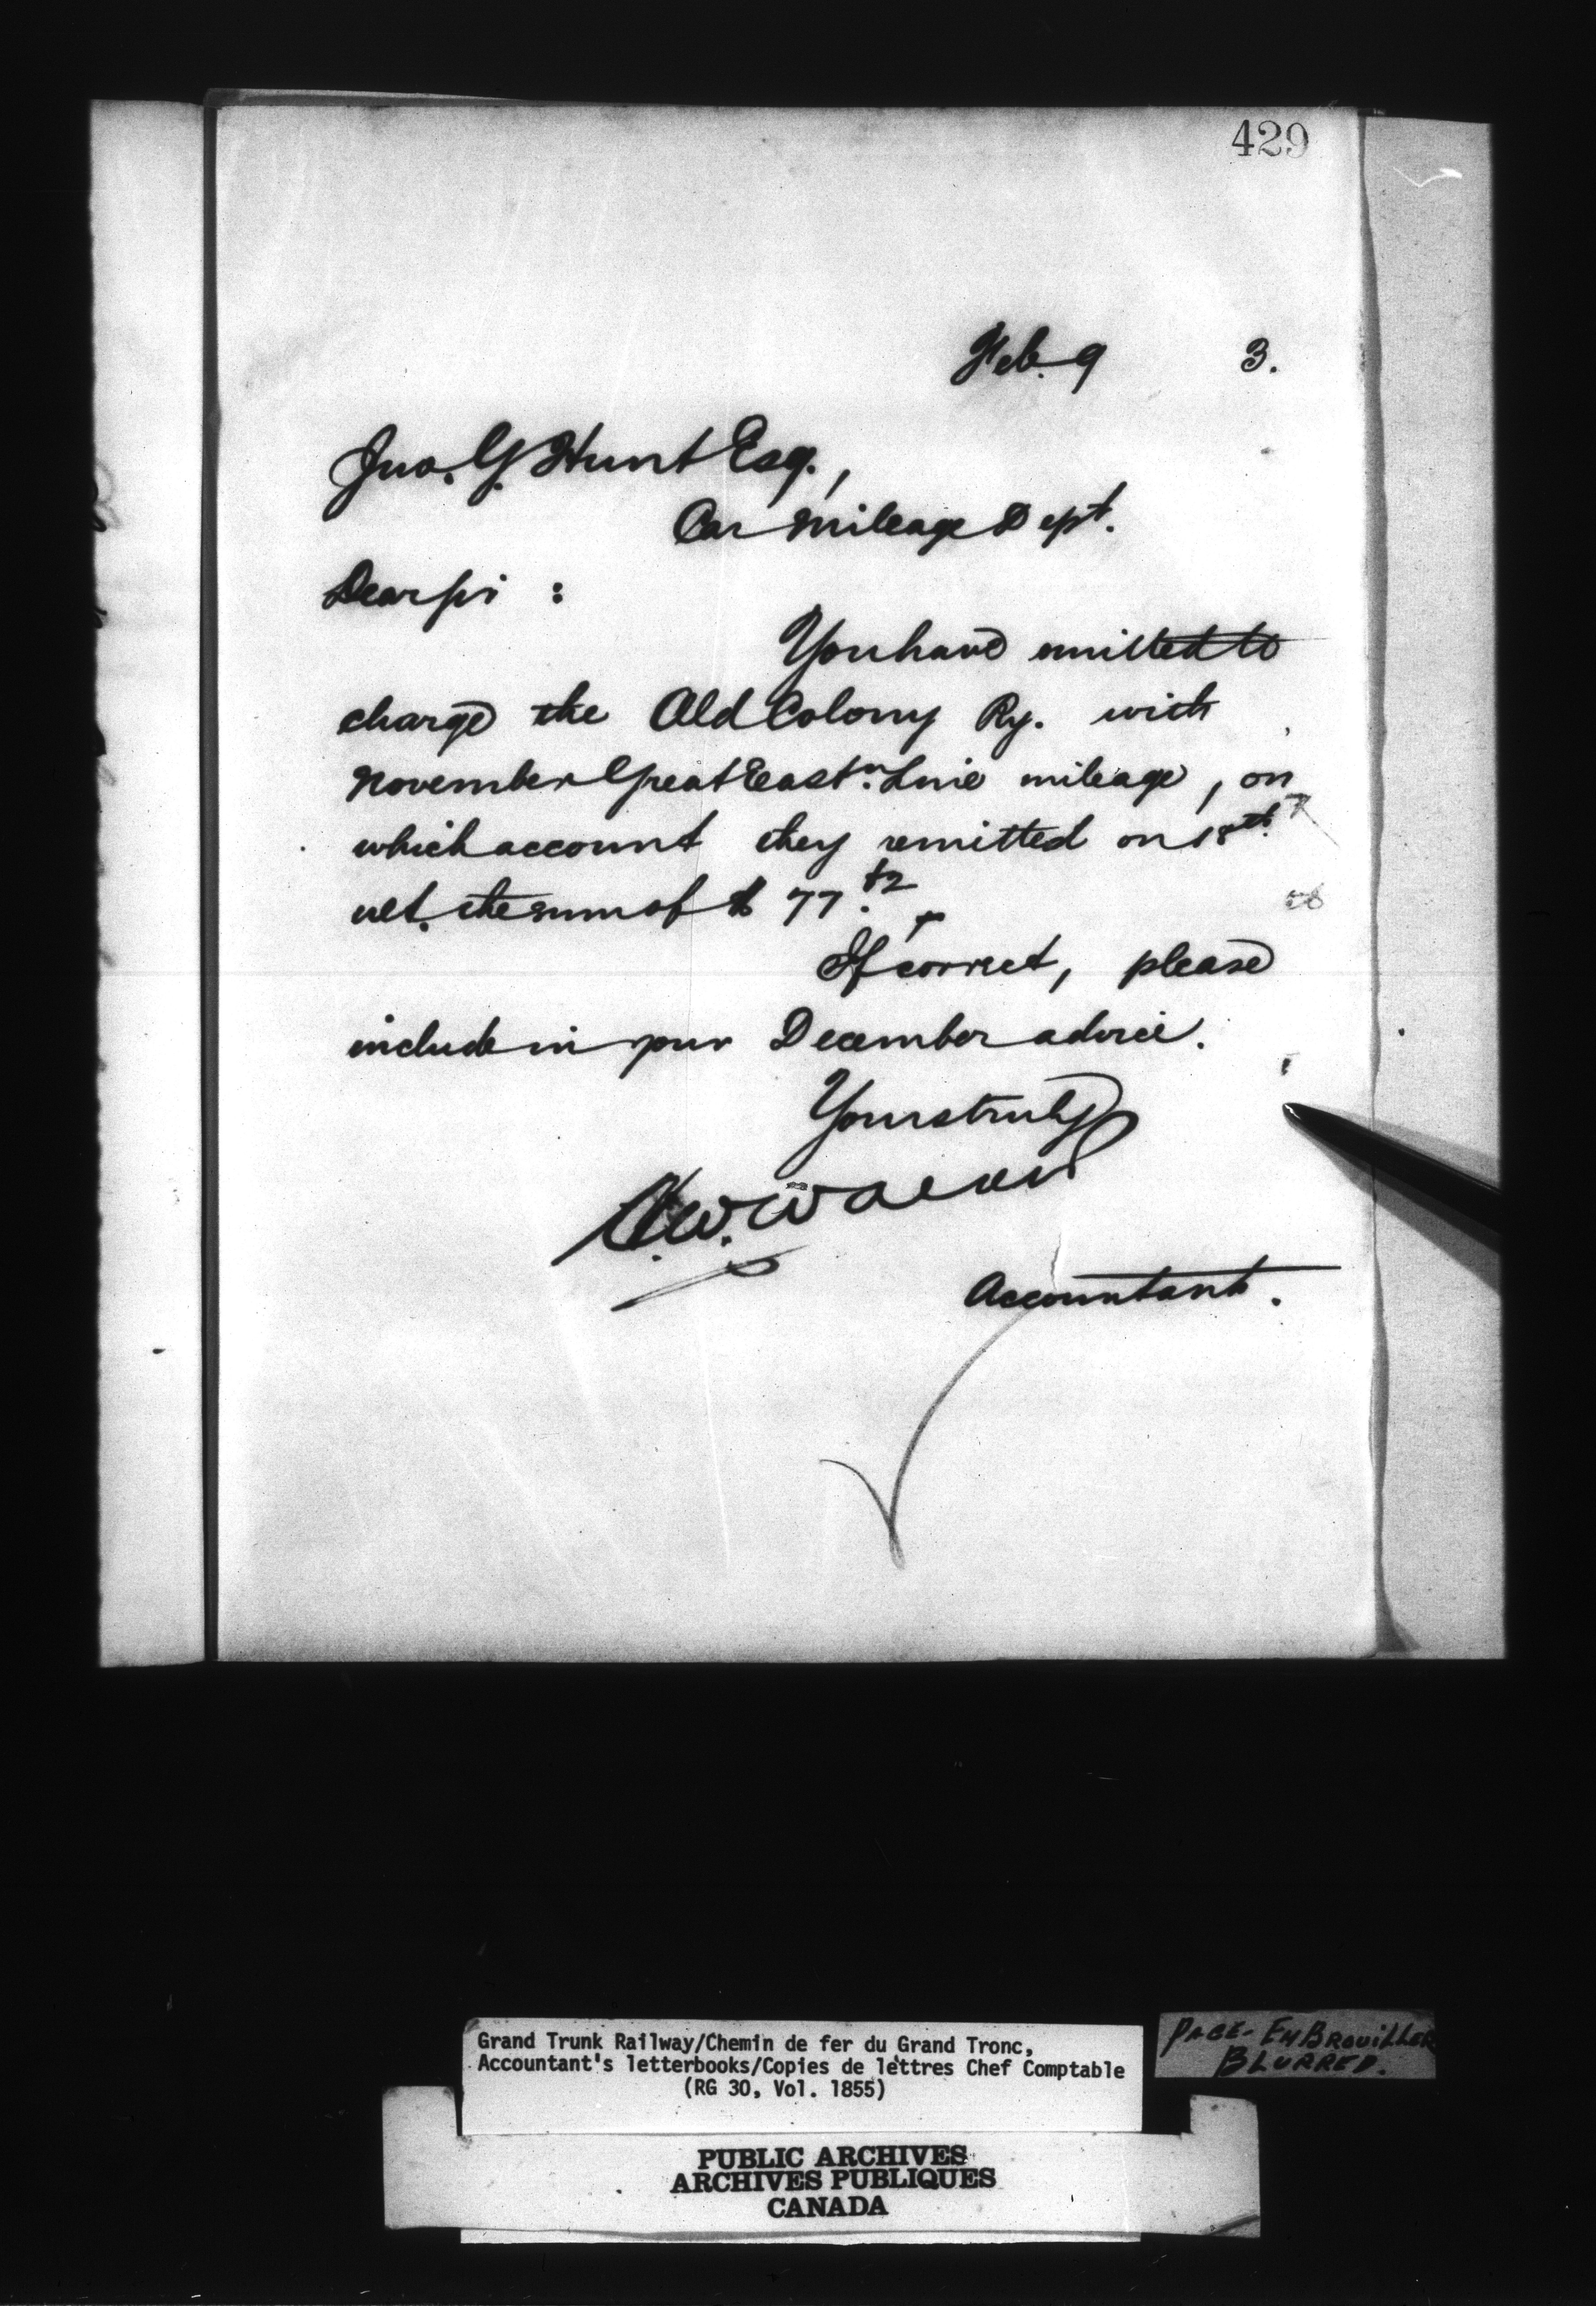 429
Feb. 9 3.
Jno. G. Hunt Esq.,
Car Mileage Dept.
Dear Sir :
You have omitted to
charge the Old Colony Ry. with
November Great East'n. Line mileage, on
which account they remitted on 18th.
ult. the sum of $ 77.
If correct, please
include in your December advice.
Yours truly
W.
Accountant.
Grand Trunk Railway/Chemin de fer du Grand Tronc,
Accountant's letterbooks/Copies de lettres Chef Comptable
(RG 30, Vol. 1855)
PAGE - EMBROUILLER
BLURRED.
PUBLIC ARCHIVES
ARCHIVES PUBLIQUES
CANADA